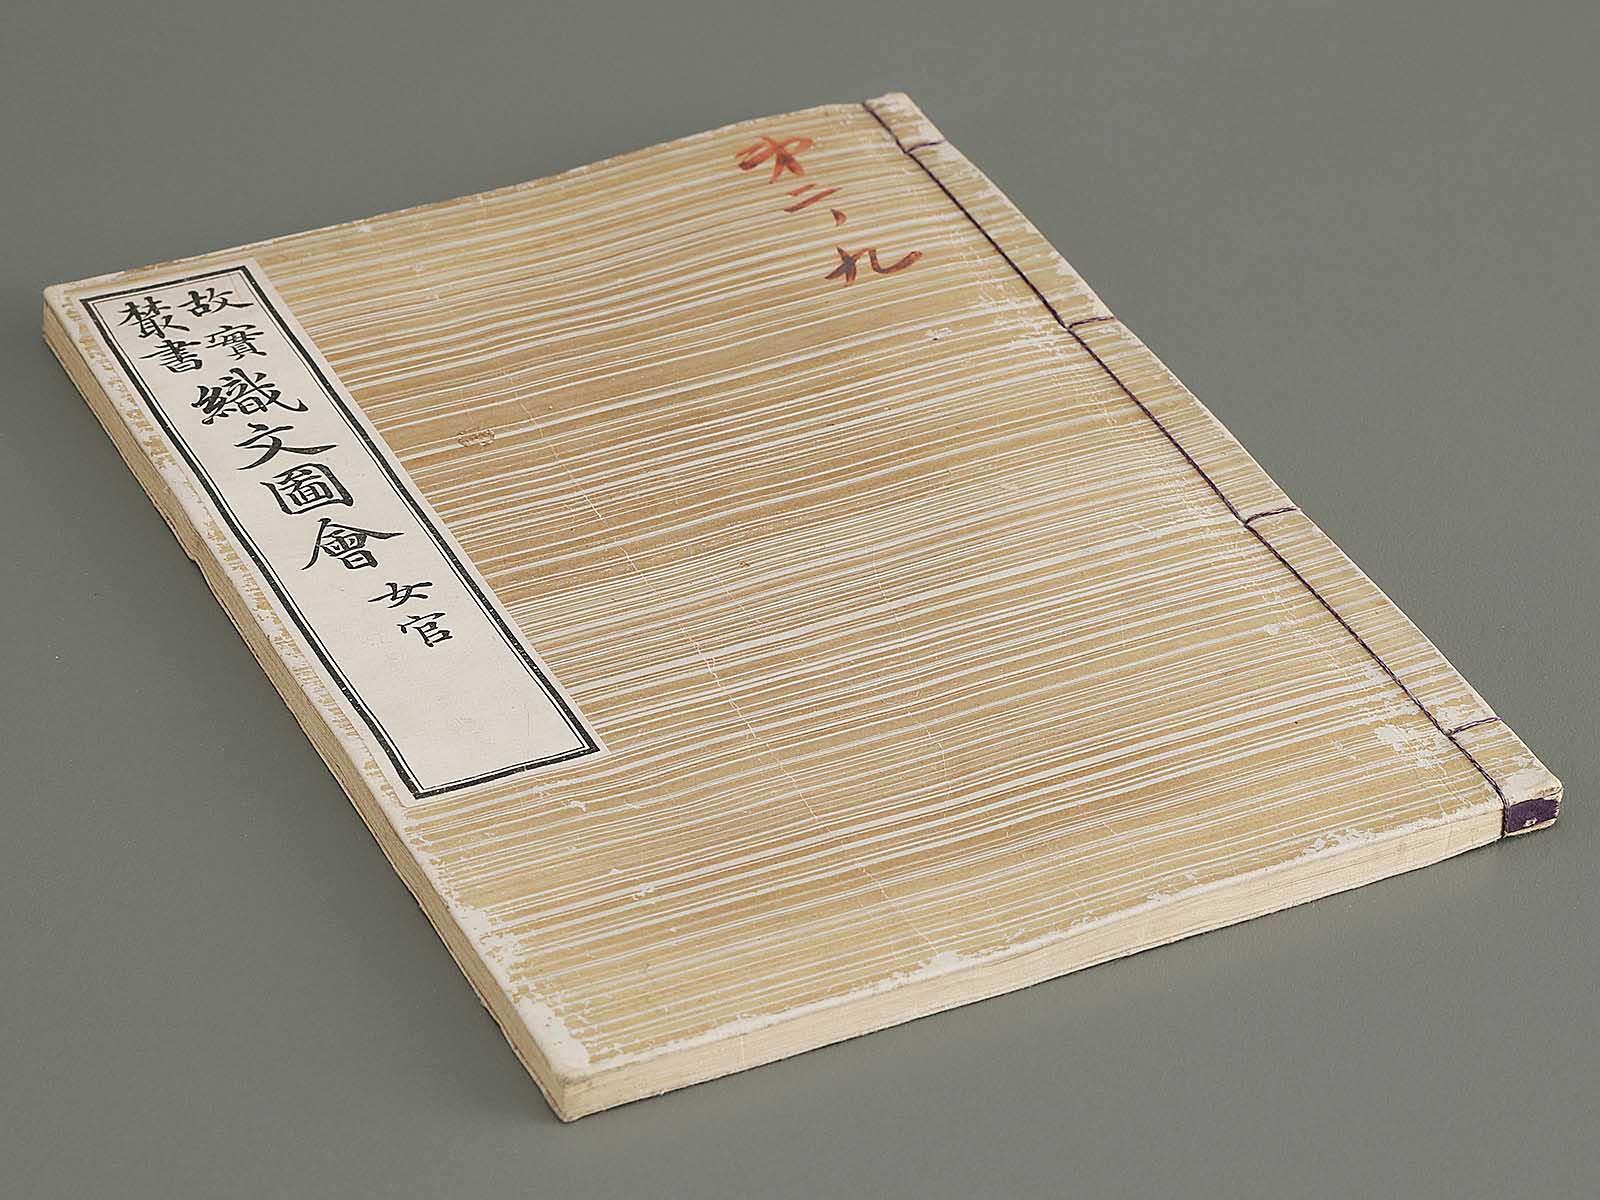 故實
叢書
織文圖會
女官
第二、九